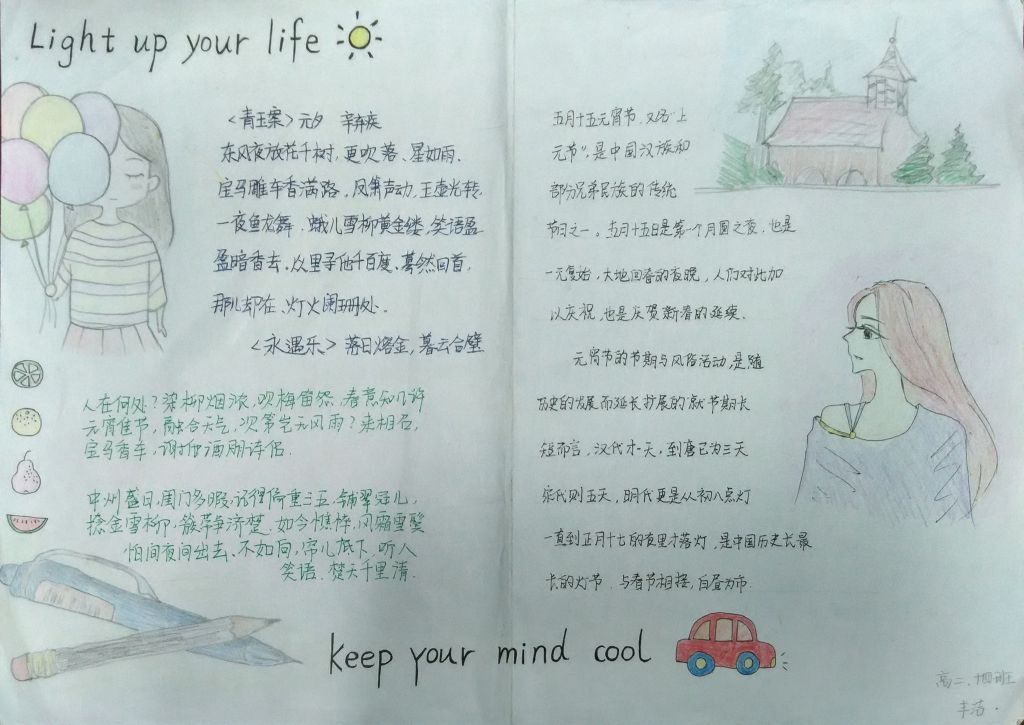 Light up your life
《青玉案》元夕 辛弃疾
东风夜放花千树,更吹落、星如雨.
宝马雕车香满路.凤箫声动,玉壶光转.
一夜鱼龙舞.蛾儿雪柳黄金缕,笑语盈
盈暗香去.众里寻他千百度.蓦然回首,
那人却在、灯火阑珊处.
《永遇乐》落日熔金,暮云合璧
人在何处?染柳烟浓,吹梅笛怨.春意知几许
元宵佳节,融合天气,次第岂无风雨?来相召,
宝马香车,谢他酒朋诗侣.
中州盛日,闺门多暇,记得偏重三五,铺翠冠儿,
捻金雪柳.簇带争济楚.如今憔悴,风鬟雪鬓
怕间夜间出去、不如向,帘儿底下,听人
笑语.楚天千里清.
五月十五元宵节,又名"上
元节",是中国汉族和
部分兄弟民族的传统
节日之一。五月十五日是第一个月圆之夜,也是
一元复始,大地回春的夜晚,人们对此加
以庆祝,也是庆贺新春的延续.
元宵节的节期与风俗活动,是随
历史的发展而延长扩展的就节期长
短而言,汉代才一天,到唐已为三天
宋代则五天,明代更是从初八点灯
一直到正月十七的夜里才落灯,是中国历史长最
长的灯节.与春节相接,白昼为市.
keep your mind cool
高二、十四班